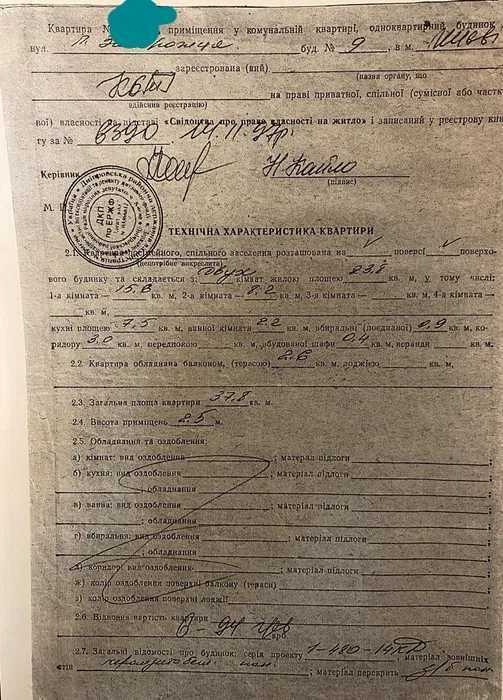 Квартира № , приміщення у комунальній квартирі, одноквартирний будинок
вул. буд. № 9, в м. Києві
зареєстрована (ний)
(назва органу, що
КБТІ на праві приватної, спільної (сумісної або частк
здійснив реєстрацію)
вої) власності на підставі «Свідоцтва про право власності на житло» і записаний у реєстрову кни
гу за № 14.11.97р.
Керівник
(підпис)
М. П.
ДКП
по ЕРЖФ
ТЕХНІЧНА ХАРАКТЕРИСТИКА КВАРТИРИ
2.1. Квартира спільного заселення розташована на V поверсі V поверхо-
(потрібне викреслити)
вого будинку та складається з: двух кімнат жилою площею 23,8 кв. м, у тому числі:
1-а кімната — 15,6 кв. м, 2-а кімната — 8,2 кв. м, 3-я кімната — кв. м, 4-а кімната —
кв. м,
кухні площею 7,5 кв. м, ванної кімнати 2,2 кв. м, вбиральні (поєднаної) 0,9 кв. м, ко-
ридору 3,0 кв. м, передпокою кв. м, вбудованої шафи 0,4 кв. м, веранди кв. м.
2.2. Квартира обладнана балконом, (терасою) 2.6 кв. м, лоджією кв. м,
2.3. Загальна площа квартири 37,8 кв. м.
2.4. Висота приміщень 2.5 м.
2.5. Обладнання та оздоблення:
а) кімнат: вид оздоблення ; матеріал підлоги
б) кухня: вид оздоблення ; матеріал підлоги
; обладнання
в) ванна: вид оздоблення ; матеріал підлоги
; обладнання
г) вбиральня: вид оздоблення ; матеріал підлоги
; обладнання
д) коридор: вид оздоблення ; матеріал підлоги
ж) колір оздоблення поверхні балкону (тераси)
з) колір оздоблення поверхні лоджії
2.6. Відновна вартість квартири 6-94 грв
крб.
2.7. Загальні відомості про будинок: серія проекту 1-480-14КР, матеріал зовнішніх
стін пан. матеріал перекрить з/б пан.